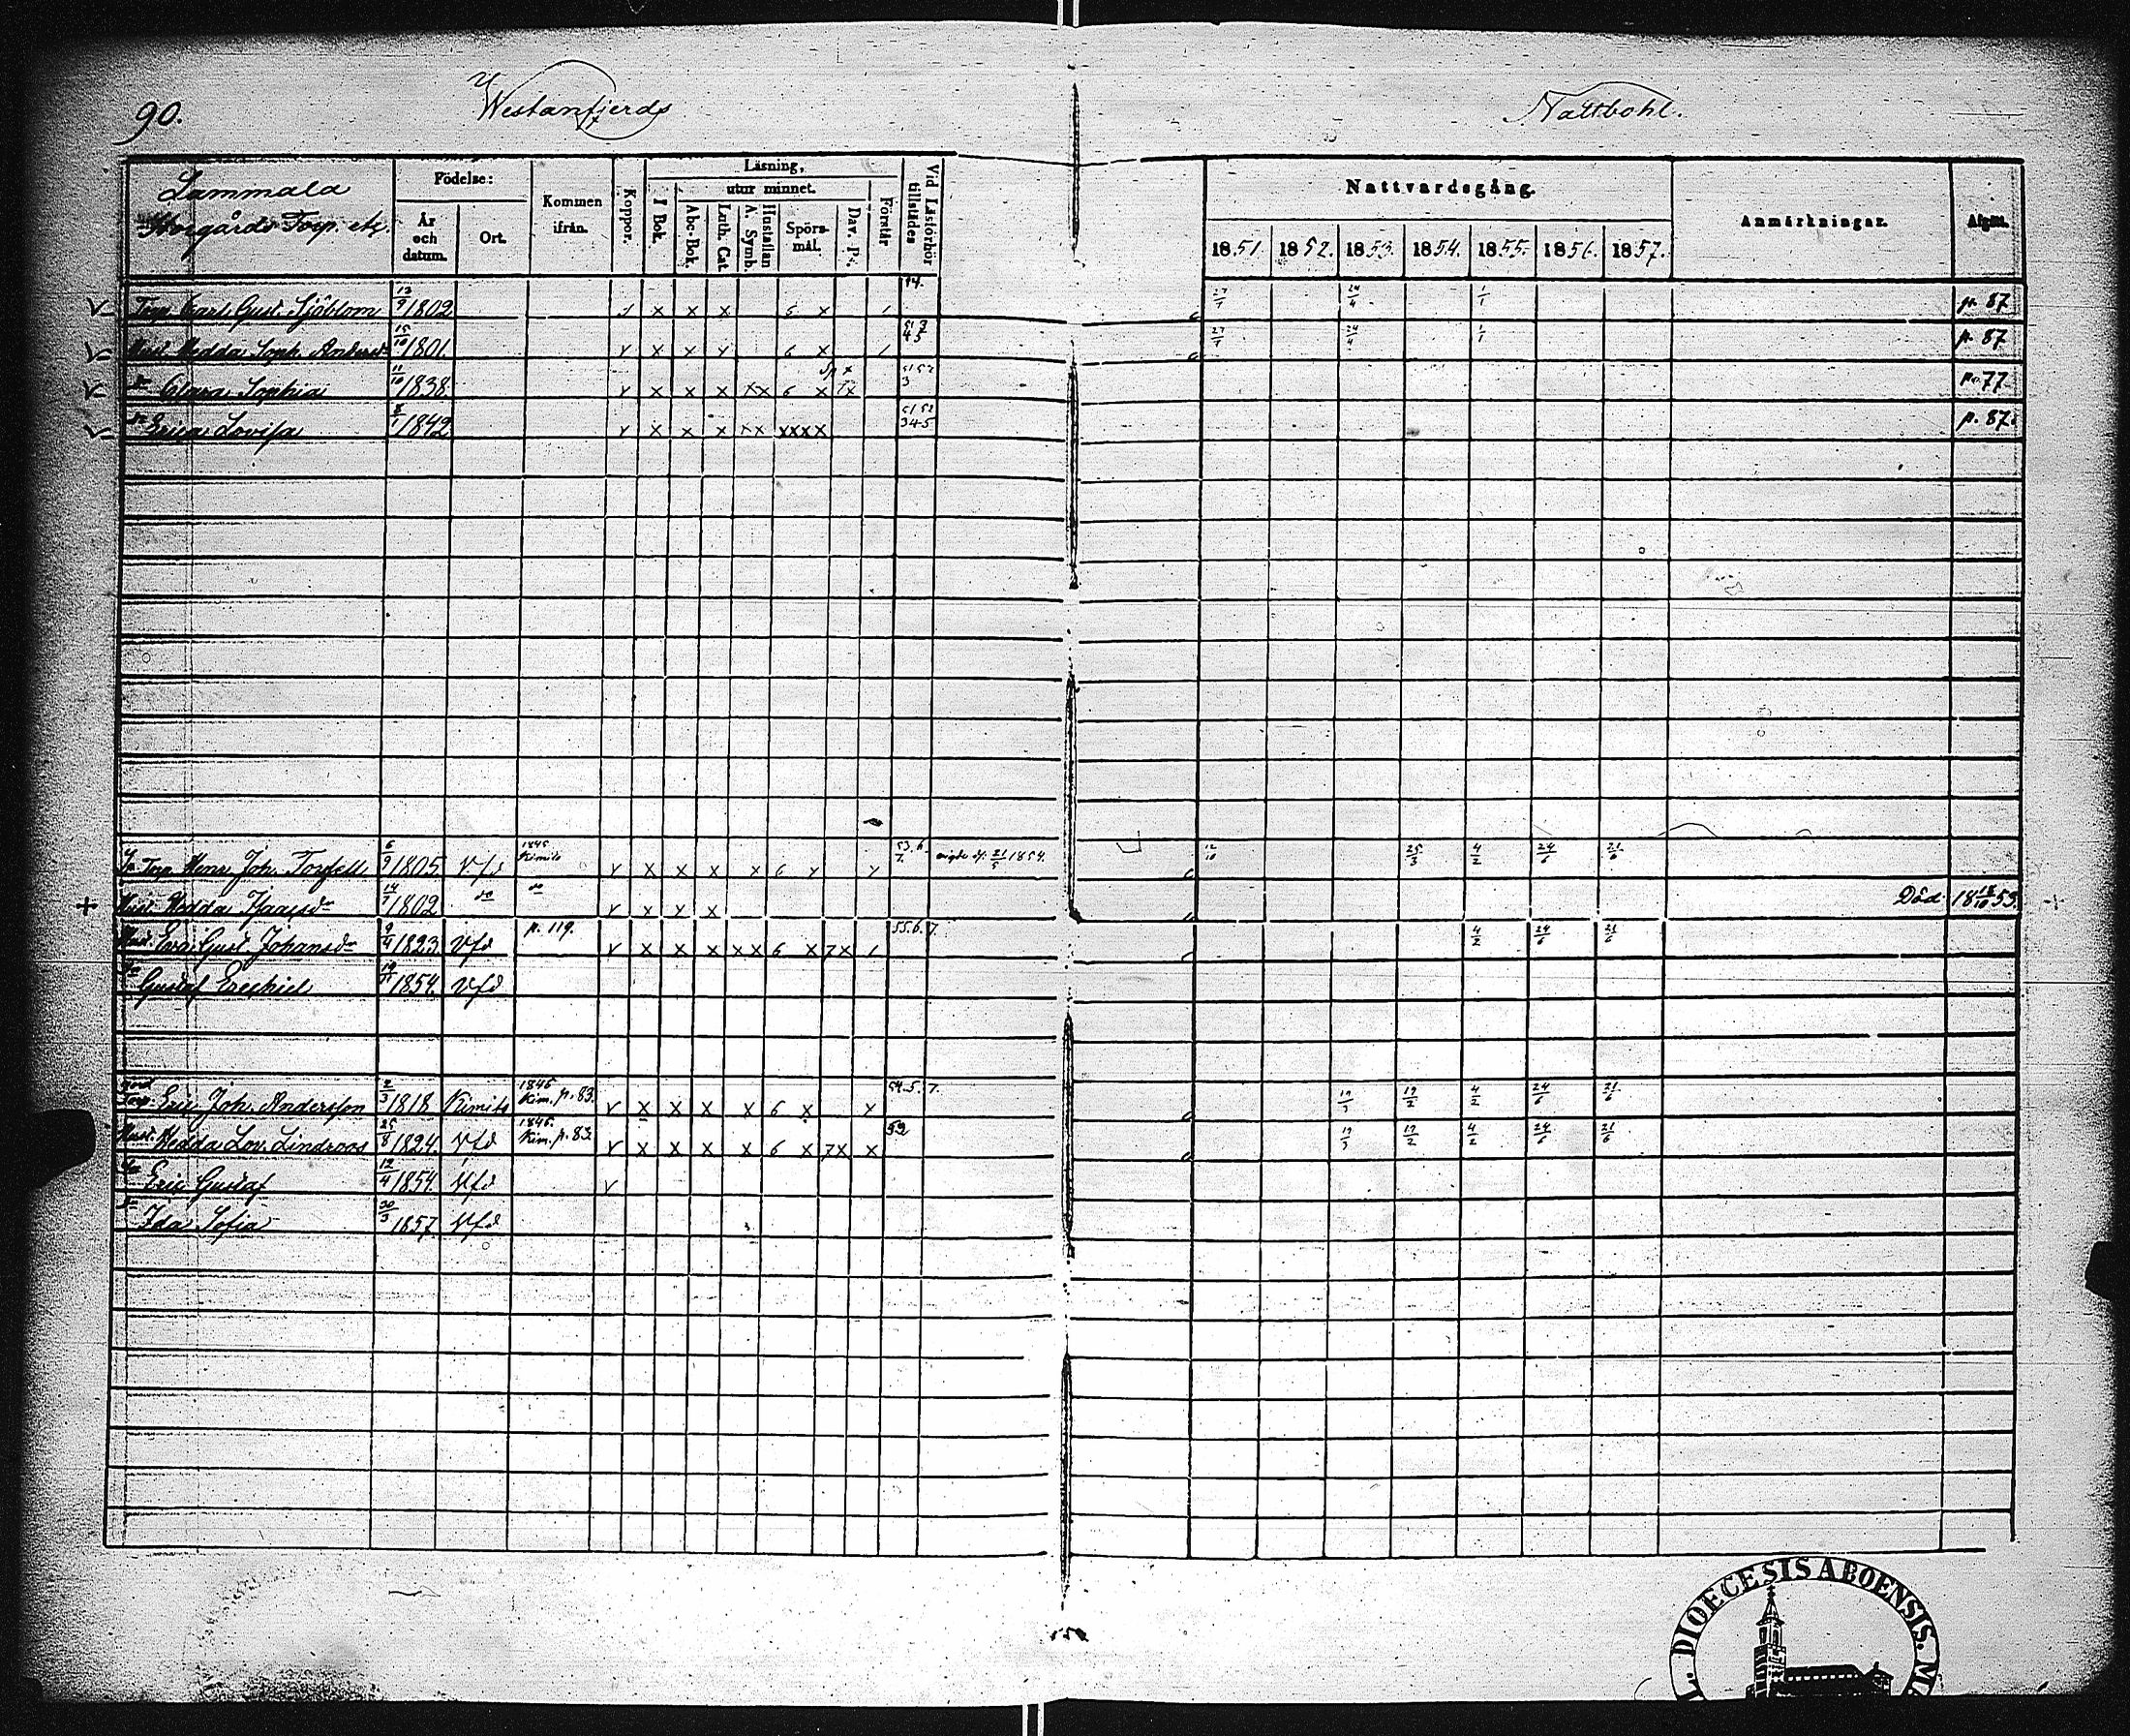 90.
Westanfjerds
Nattbohl.
Lammala
Storgårds Torp. etc.
Födelse:
År och datum.
Ort.
Kommen ifrån.
Koppor.
Läsning,
I Bok.
utur minnet.
Abc-Bok.
Luth. Cat.
A. Symb. Hustaflan
Spörsmål.
Dav. Ps.
Förstår
Vid Läsförhör tillstädes
Nattvardsgång.
1851. 1852. 1853. 1854. 1855. 1856. 1857.
Anmärkningar.
Afgått.
Torp. Carl Gust. Sjöblom 13/9 1802 x x x 6 x 27/7 24/4 1/1 p. 87
Hust. Hedda Soph. Andersdr 15/10 1801. x x 6 x 27/7 24/4 1/1 p. 87
dr Clara Sophia 11/10 1838 x x x xx 6 x p. 77
dr Erica Lovisa 8/1 1842 x x x xx xxxx 51 52 345 p. 87.
Torp. Henr. Joh. 6/9 1805 Vfd 1845 Kimito x x x x 6 53.6. 7. 21/5 1854. 12/10 25/3 4/2 24/6 21/6
+ Hust. Hedda 14/7 1802 do do x Död 18 53. +
Hust. Eva Gust. Johansdr 9/4 1823 Vfd p. 119. x x x xx 6 x 7x 55.6.7. 4/2 24/6 21/6
Gustaf Ezechiel 1854. Vfd
Torp. Eric Joh. Andersson 2/3 1818 Kimito 1845 Kim. p. 83. x x x x 6 x 54.5.7. 19/2 4/2 24/6 21/6
Hust. Hedda Lov. Lindroos 25/8 1824. Vfd 1845. Kim. p. 83 x x x x 6 x 7x x 52 19/2 4/2 24/6 21/6
Eric Gustaf 12/4 1854. Vfd
dr Ida Sofia 30/3 1857. Vfd
DIOECESIS ABOENSIS.